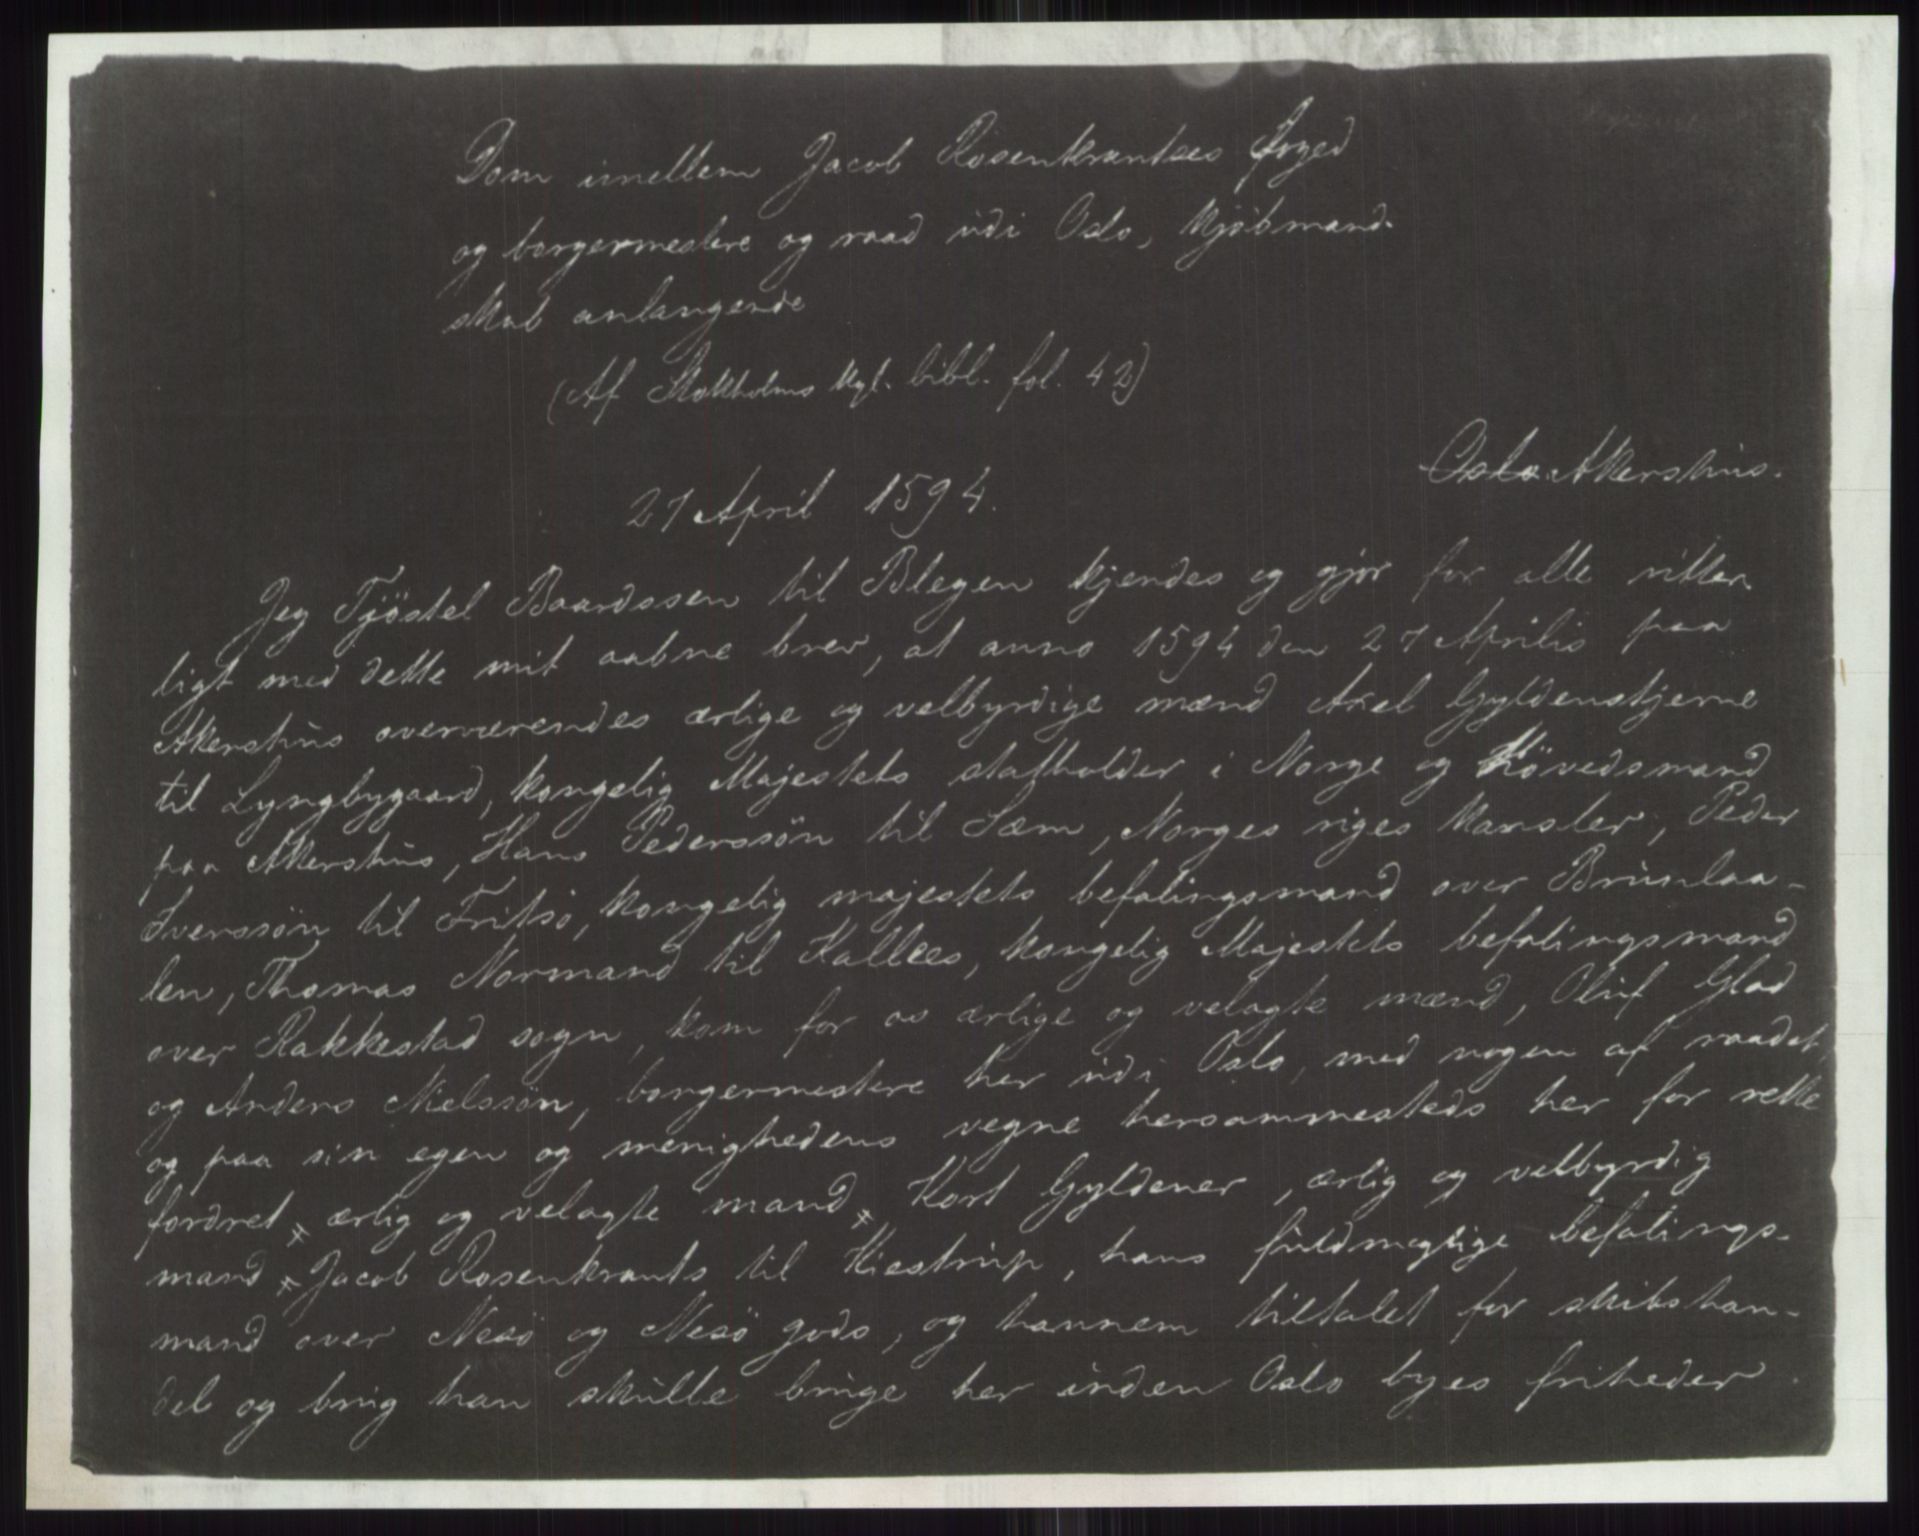 Dom imellem Jacob Rosenkrantzes foged
og borgermestere og raad udi Oslo, kjøbmand-
skab anlangende
(Af Stokholms kgl. bibl. fol. 42)
Oslo. Akershus.
27 April 1594.
Jeg Tjöstel Baardssen til Blegen kjendes og gjør for alle vitter-
ligt med dette mit aabne brev, at anno 1594 den 27 Aprilis paa
Akershus overværendes ærlige og velbyrdige mænd Axel Gyldenstjerne
til Lyngbygaard, kongelig Majestets statholder i Norge og Hövedsmand
paa Akershus, Hans Pederssön til Sæm, Norges riges kansler, Peder
Iverssön til Fritsö, kongelig majestets befalingsmand over Brunlaa-
len, Thomas Normand til Kallees, kongelig Majestets befalingsmand
over Rakkestad sogn, kom for os ærlige og velagte mænd, Oluf Glad
og Anders Nielssön, borgermestere her udi Oslo, med nogen af raadet,
og paa sin egen og menighedens vegne hersammesteds her for rette
fordret ærlig og velagte mand Kort Gyldener, ærlig og velbyrdig
mand Jacob Rosenkrants til Kiestrup, hans fuldmegtige befalings-
mand over Nesö og Nesö gods, og hannem tiltalet for skibshan-
del og brug han skulle bruge her inden Oslo byes friheder.